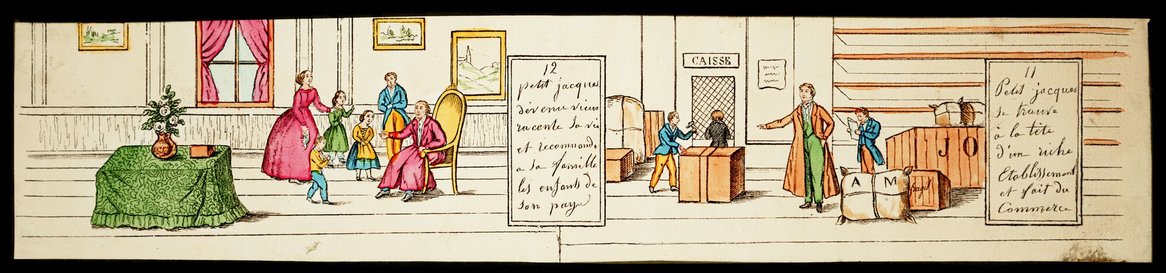 12
petit jacques
devenu vieux
raconte sa vie
et recommande
a sa famille
les enfants de
son pays
CAISSE
11
Petit jacques
se trouve
à la tête
d'un riche
Etablissement
et fait du
Commerce
J O
A M
fragil